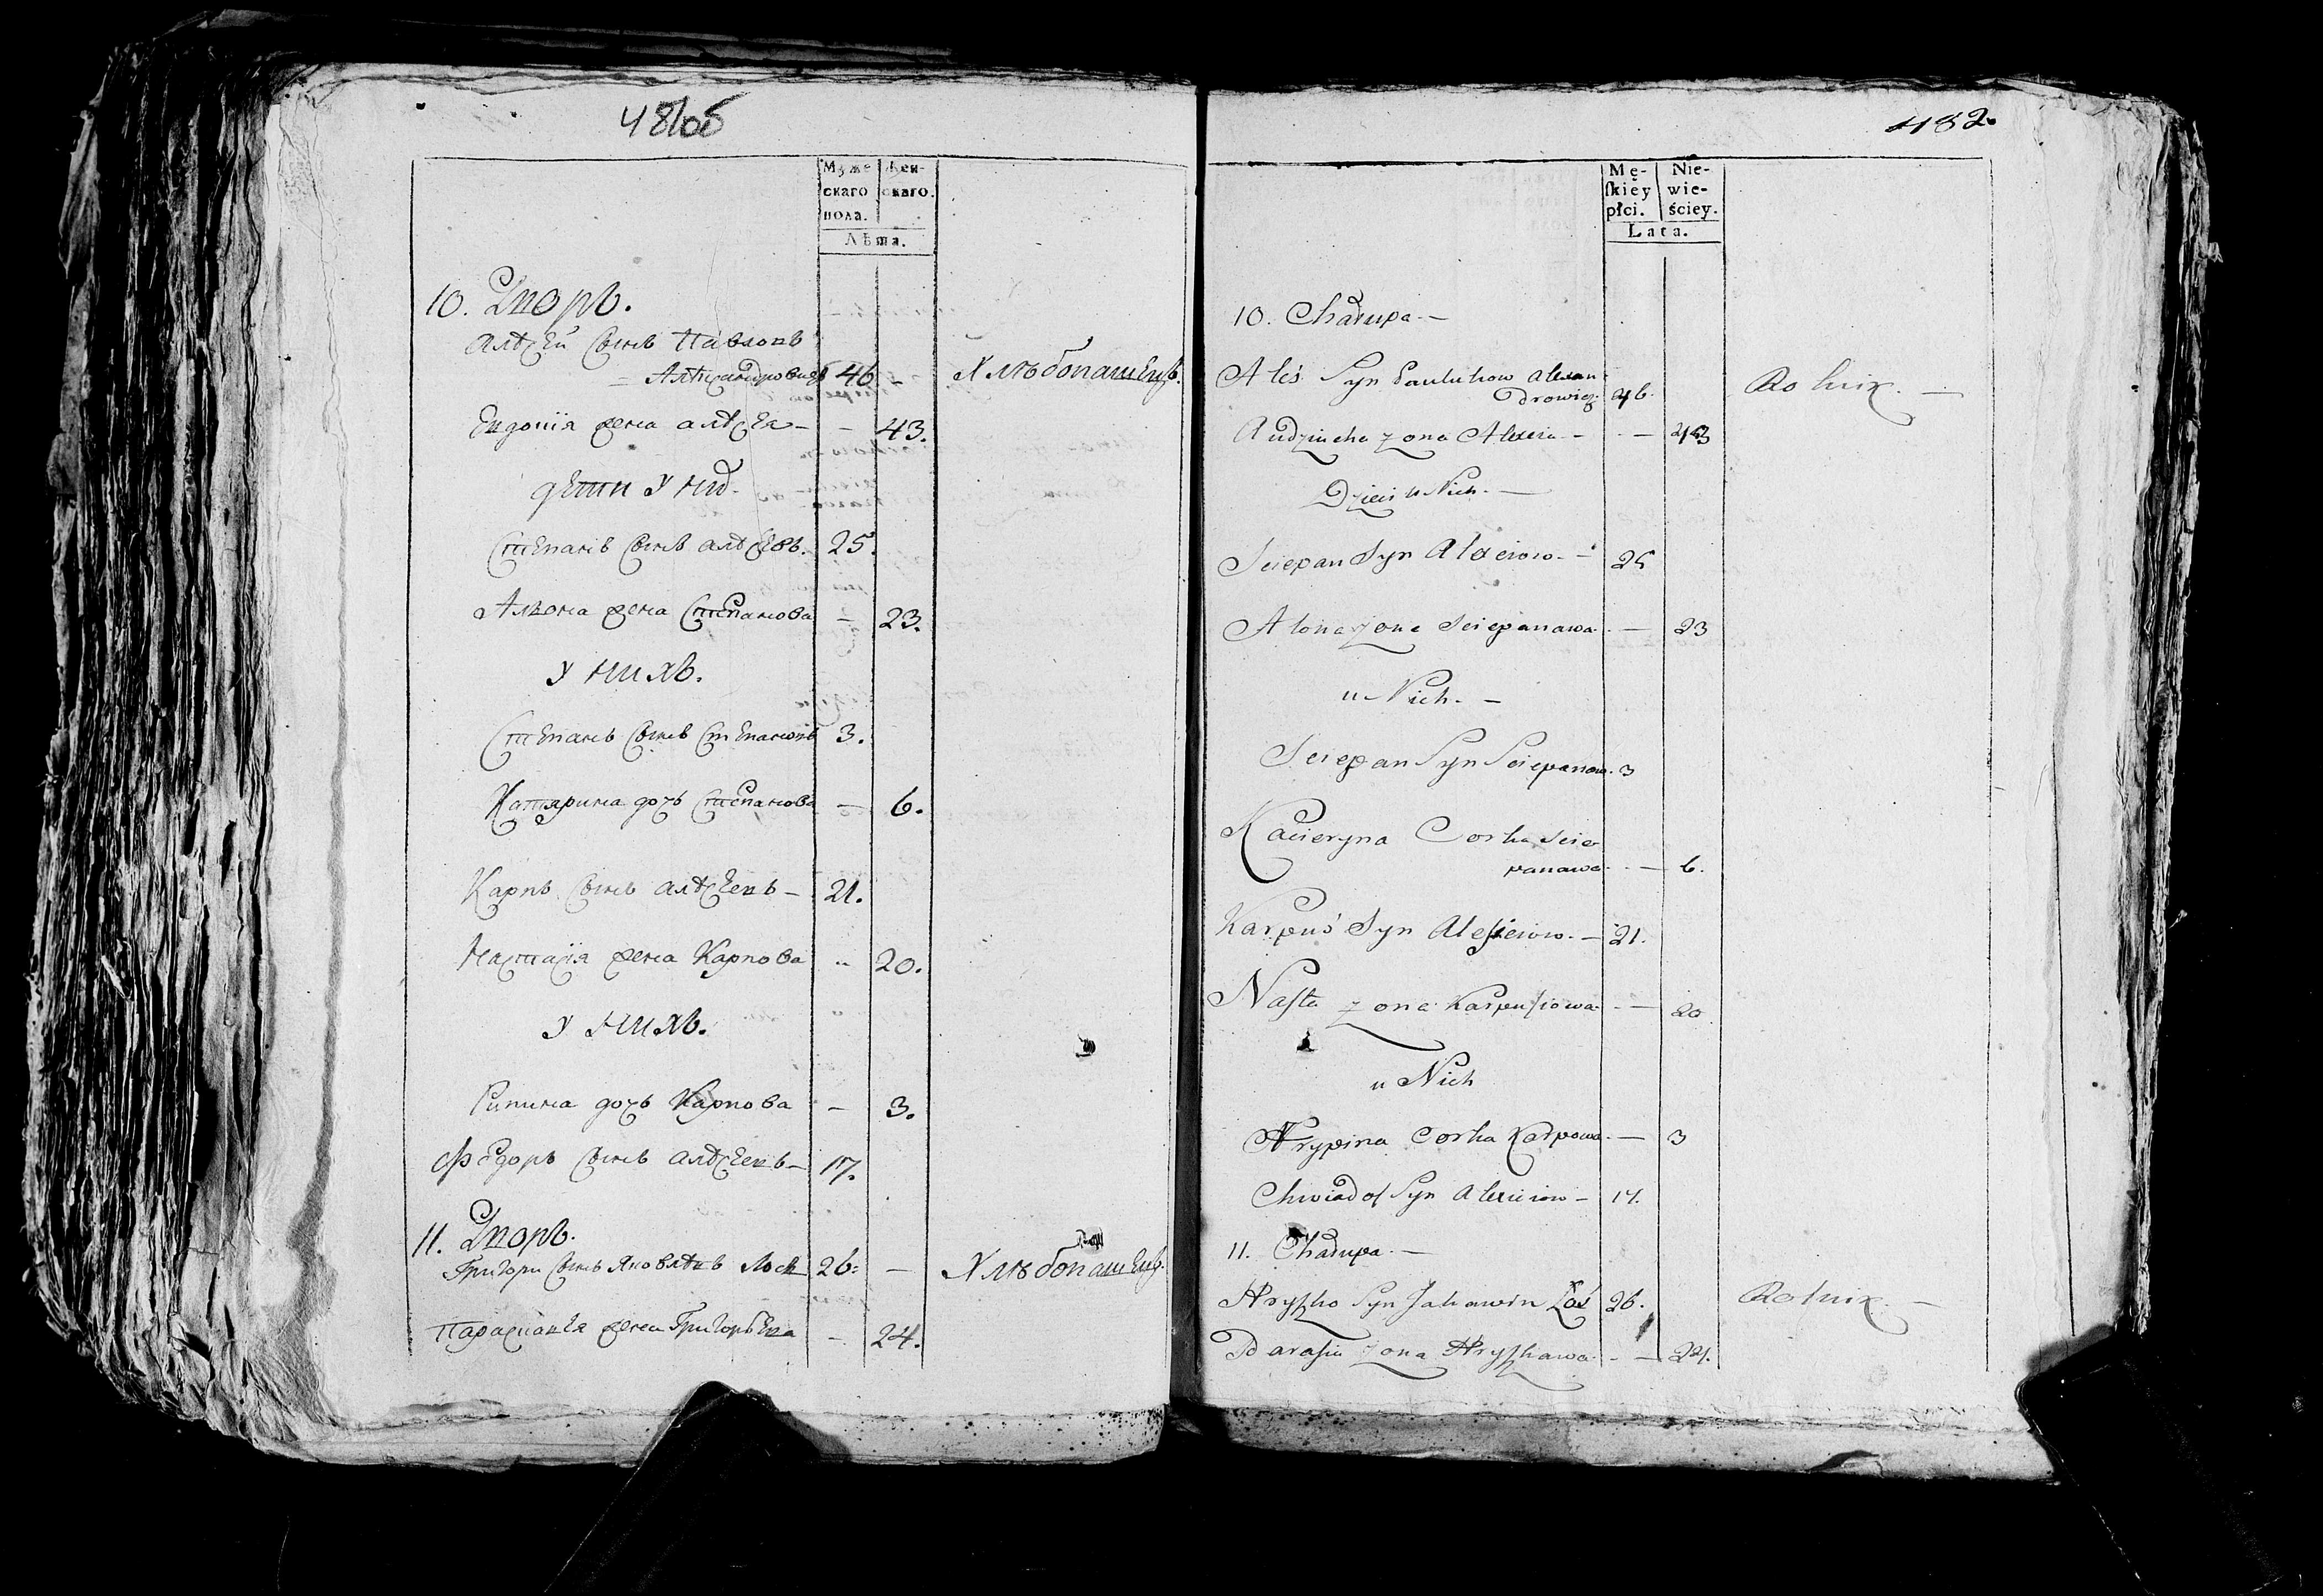 481об
Муже
скаго
пола.
Жен-
скаго.
Лѣта.
10. Дворъ.
Алѣѯей сынъ Павловъ
Алеѯандровичъ 46 - Хлѣбопашецъ.
Евдокія жена алѣѯея - - 43.
дети у них.
Степанъ сынъ алѣѯеевъ. 25.
Алиона жена Степанова - 23.
у нихъ.
Степанъ сынъ Степановъ 3.
Катярина дочь Степанова - 6.
Карпъ сынъ алѣѯеевъ - 21.
Настасія жена Карпова " 20.
у нихъ.
дочь Карпова - 3.
Федоръ сынъ алѣѯеевъ - 17.
11. Дворъ.
Григори сынъ Яковлевъ Лось 26: - Хлѣбопашецъ.
жена Григорьева - 24.
482.
Mę-
ſkiéy
płci.
Nie-
wie-
ściey.
Lata.
10. Chałupa. -
Aleś Syn Pauluhow Alexan
drowicz 46. Rolnik. -
Audziucha żona Alexia - - - 43
Dzieci u Nich. -
Sciepan Syn Alexiow. - 25
Alona żona Sciepanawa. - 23
u Nich. -
Sciepan Syn Sciepanow. 3
Kacieryna Corka Scie
panawa. - 6.
Karpuś Syn Aleſieiow. - 21.
Naſta żona Karpuſiowa - - 20
u Nich
Hrypina Corka Karpowa. - 3
Chwiadoſ Syn Alexieiow - 17.
11. Chałupa. -
Hryſho Syn Jakawin Łoś 26. Rolnik. -
Paraſia żona Hryſhawa - - 24.